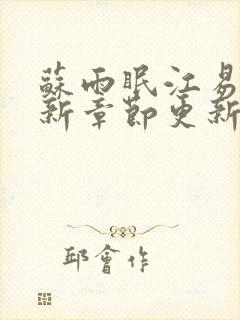 蘇雨眠江易
新章節更新
邱會作